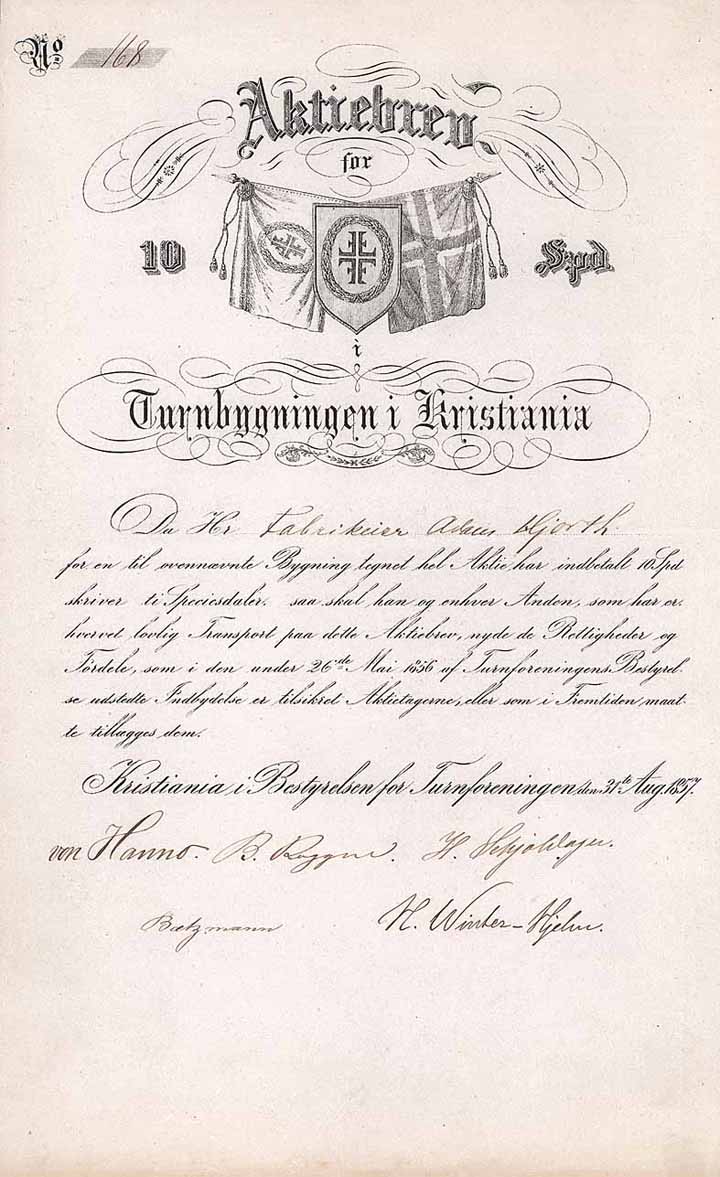 No 168
Aktiebrev
for
10 Spd
i
Turnbygningen i Kristiania
Da Hr Fabrikeier Adam Hjorth.
for en til ovennævnte Bygning tegnet hel Aktie har indbetalt 10 Spd
skriver ti Speciesdaler. saa skal han og enhver Anden, som har er-
hvervet lovlig Transport paa dette Aktiebrev, nyde de Rettigheder og
Fördele, som i den under 26de Mai 1856 af Turnforeningens Bestyrel-
se udstedte Indbydelse er tilsikret Aktietagerne, eller som i Fremtiden maat-
te tillægges dem.
Kristiania i Bestyrelsen for Turnforeningen den 31te Aug. 1857.
von Hanno. B. H.
Bætzmann H. Winter-Hjelm.